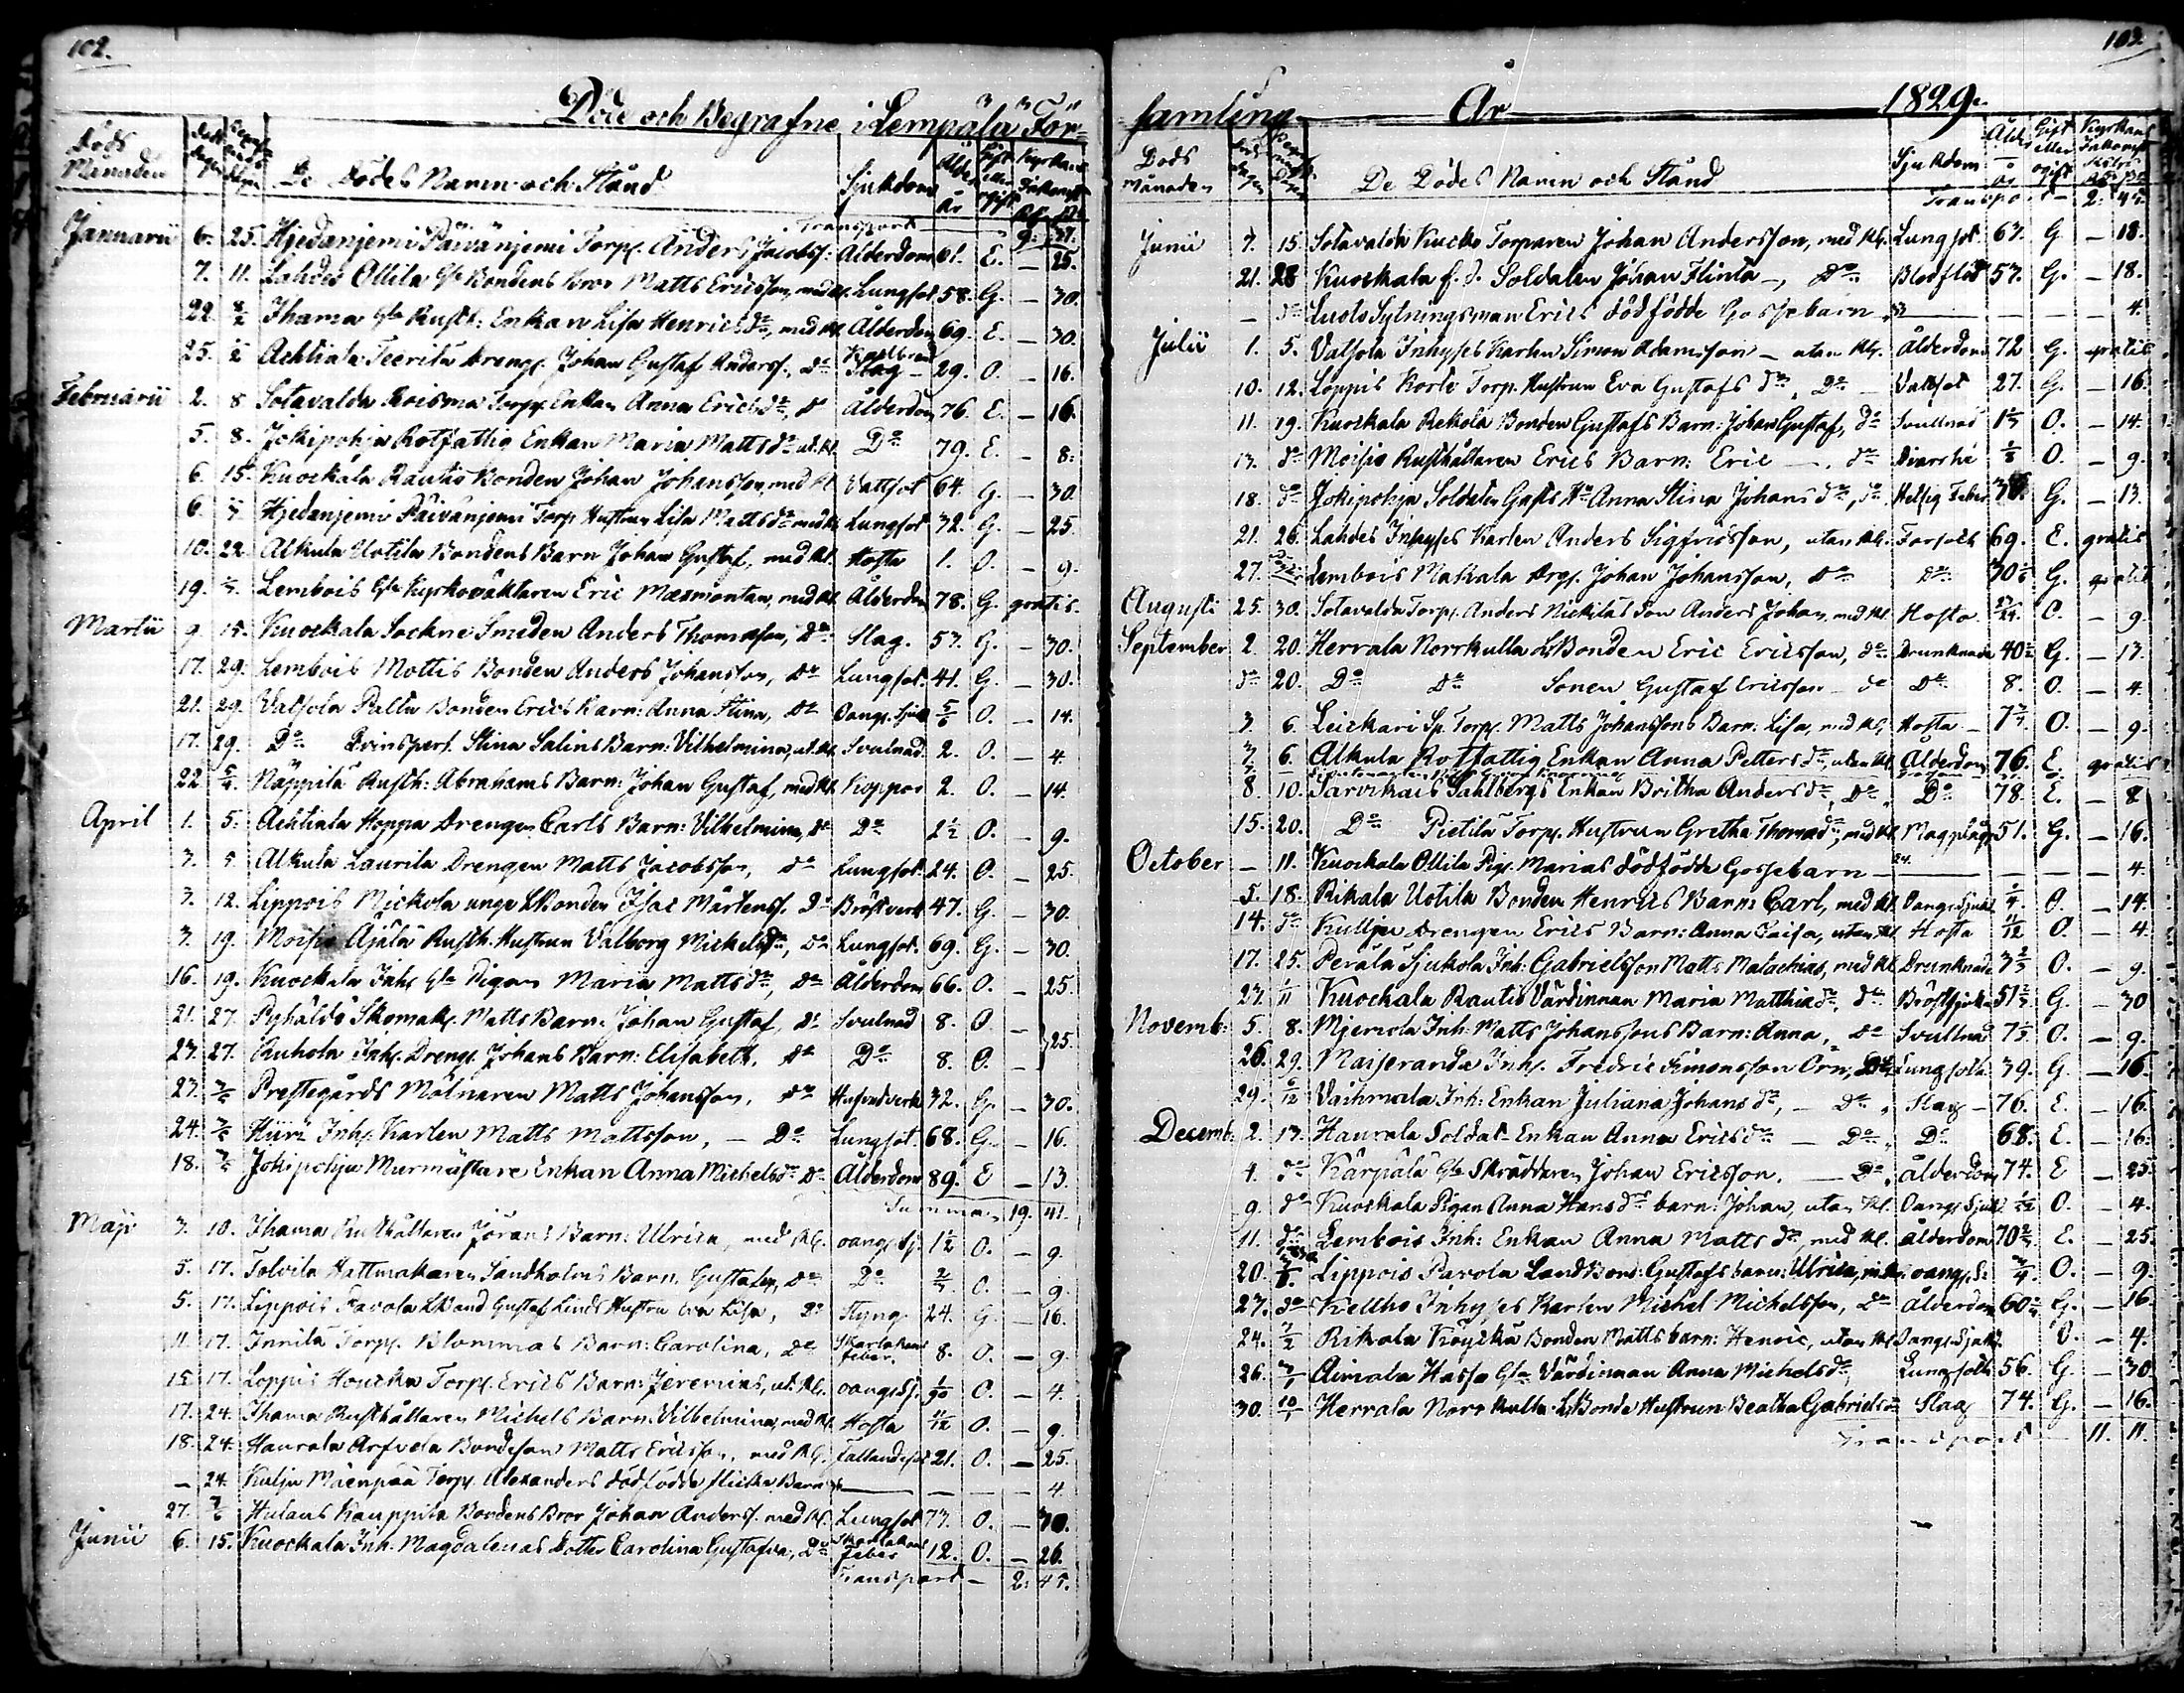 102.
Döde och Begrafne i Lempälä För-
Döds Månaden De Dödes Namn och Stånd Sjukdom Ålder år Gift eller ogift Kyrkans Inkomst
Transport 9. 37.
Januarii 6. 25. Hjedanjemi Päivänjemi Torp. Anders Jacobss: Ålderdom 61. E. — 25.
7. 11. Lahdes Ollila Gle Bondens Bror Matts Ericsson, med kl. Lungsot 58. G. — 30.
22. 8/2 Ihama Gle Rusth: Enkan Lisa Henricsdr, med kl. Ålderdom 69. E. — 30.
25. Achtiala Teerila Dreng. Johan Gustaf Anderss. Do 29. O. — 16.
Februarii 2. 8 Sotavalda Torp. Enkan Anna Ericsdr, Do Ålderdom 76. E. — 16.
5. 8. Jokipohja Rotfattig Enkan Maria Mattsdr ut. kl. Do 79. E. — 8.
6. 15. Kuockala Rautio Bonden Johan Johansson, med kl Vattsot 64. G. — 30.
6. Hjedanjemi Päivänjemi Torp Hustrun Lisa Mattsdr med kl Lungsot 32. G. — 25.
10. 22. Alkula Uotila Bondens Barn Johan Gustaf, med kl. Hosta 1. O. — 9.
19. Lembois Gle Kyrkoväktaren Eric med kl. Ålderdom 78. G. gratis.
Martii 9. 15. Kuockala Sockne Smeden Anders Thomasson, Do Slag. 53. G. — 30.
17. 29. Lembois Mottis Bonden Anders Johansson, Do Lungsot. 41. G. — 30.
21. 29. Valsola Palla Bonden Erics Barn: Anna Stina, Do Oang. Sjuk 5/6 O. — 14.
17. 29. Do Stina Salins Barn: Vilhelmina, ut. kl. Svulnad 2. O. — 4
22 5/4. Näppilä Rusth: Abrahams Barn: Johan Gustaf, med kl. Koppor 2. O. — 14.
April 1. 5. Achtiala Hoppa Drengen Carls Barn: Vilhelmina, Do Do 2½ O. — 9.
3. 5. Alkula Laurila Drengen Matts Jacobsson, do Lungsot. 24. O. — 25.
3. 12. Lippois Mickola unge LBonden Isac Mårtenss. Do Bröstverk 47. G. — 30.
3. 19. Moisio Äjälä Rusth. Hustrun Valborg Michelsdr, Do Lungsot. 69. G. — 30.
16. 19. Kuockala Inhs Gle Pigan Maria Mattsdr, Do Ålderdom 66. O. — 25.
21. 27. Pyhäldö Skomak. Matts Barn: Johan Gustaf, Do Svulnad 8. O. —
23. 27. Ruhola Inhs. Dreng. Johans Barn: Elisabeth, Do Do 8. O. — 25.
23. Prestegårds Mölnaren Matts Johansson, do Hufvudverk 32. G. — 30.
24. Hiiri Inhs. Karlen Matts Mattsson, — Do Lungsot. 68. G. — 16.
18. Jokipohja Murmästare Enkan Anna Michelsdr Do Ålderdom 89. E — 13.
Summan 19. 41.
Maji 3. 10. Ihama Rusthållaren Jörans Barn: Ulrica, med kl. oang. Sj. 1½ O. — 9.
5. 17. Tolvila Hattmakaren Sandholms Barn. Gustafva, Do Do O. — 9.
5. 17. Lippois Pavola LBond Gustaf Linds Hustru Eva Lisa, Do Styng 24. G. — 16.
11. 17. Innilä Torp. Blommas Barn: Carolina, Do Skarlakans feber. 8. O. — 9.
15 17. Loppis Torp. Erics Barn: Jeremias, ut. kl. oang. Sj. 1/90 O. — 4.
17. 24. Ihama Rusthållaren Michels Barn: Vilhelmina, med kl. Hosta 11/12 O. — 9.
18. 24. Haurala Arfvela Bondeson Matts Ericsson, med kl. Fallandesot 21. O. — 25.
— 24. Kulju Mäenpää Torp. Alexanders dödfödde flicko Barn — 4.
27. Hulaus Kauppila Bondens Bror Johan Anderss. med kl. Lungsot 73. O. — 30.
Junii 6. 15. Kuockala Inh. Magdalenas Dotter Carolina Gustafva, Do Skarlakans Feber 12. O. — 26.
Transport — 2. 45.
103.
samling År 1829.
Döds Månaden De Dödes Namn och Stånd Sjukdom Ålder år Gift eller ogift Kyrkans Inkomst
Transport — 2. 45.
Junii 7. 15. Sotavalda Kucko Torparen Johan Andersson, med kl. Lungsot. 63. G. — 18.
21. 28 Kuockala f. d. Soldaten Johan Flinta —, Do Blodflöd 57. G. — 18.
— do Luots Sytningsman Erics dödfödde Gossebarn — 4.
Julii 1. 5. Valsola Inhyses Karlen Simon Adamsson — utan kl. Ålderdom 72 G. gratis
10. 12. Loppis Torp. Hustrun Eva Gustafsdr, Do — Vattsot 27. G. — 16.
11. 19. Kuockala Rekola Bonden Gustafs Barn: Johan Gustaf, do Svullnad O. — 14.
13. do Moisio Rusthållaren Erics Barn: Eric —, do Diarrhé O. — 9.
18. do Jokipohja Soldaten Gasts Ho Anna Stina Johansdr, do Hetsig Feber G. — 13.
21. 26. Lahdes Inhyses Karlen Anders Sigfridsson, utan kl. Torsoth 69. E. gratis
27. Lembois Makala Drgs. Johan Johansson, Do Do G. gratis
Augusti 25. 30. Sotavalda Torp. Anders Nickilas Son Anders Johan, med kl. Hosta O. — 9.
September 2. 20. Herrala Norrkulla LsBonden Eric Ericsson, do Drunknade 40 G. — 13.
do 20. Do Do Sonen Gustaf Ericsson do Do 8. O. — 4.
3. 6. Leickari Sp. Torp. Matts Johanssons Barn. Lisa, med kl. Hosta — O. — 9.
3. 6. Alkula Rotfattig Enkan Anna Pettersdr, utan kl. Ålderdom 76. E. gratis
8. 10. Sarvikais Sahlbergs Enkan Britha Andersdr, Do, Do 78. E. — 8
15. 20. Do Pietilä Torp. Hustrun Gretha Thomasdr, med kl. Magplåg 51. G. — 16.
October — 11. Kuockala Ollila Pig. Marias dödfödde Gossebarn — 4.
5. 18. Rikala Uotila Bonden Henrics Barn: Carl, med kl. Oang. Sjukd. O. — 14.
14. do Kullju Drengen Erics Barn: Anna Caisa, utan kl Hosta O. — 4.
17. 25. Perälä Sjukola Inh: Gabrielsson Matts Malachias, med kl. Drunknade O. — 9.
23. 1/11 Kuockala Rautio Värdinnan Maria Matthiadr, do Bröstsjuka 51 G. — 30
Novemb: 5. 8. Mjerola Inh: Matts Johanssons Barn: Anna, Do Svullnad O. — 9.
26. 29. Maiseranda Inhs. Fredric Simonsson Örn, Do Lungsoth 39. G. — 16.
29. 6/12 Vaihmala Inh: Enkan Juliana Johansdr, — Do, Slag — 76. E. — 16.
Decemb: 2. 13. Haurala Soldat Enkan Anna Ericsdr — Do, Do 68. E. — 16.
4. do Kärpälä Gle Skräddaren Johan Ericsson. — Do, Ålderdom 74. E — 25.
9. do Kuockala Pigan Anna Hansdr barn: Johan, utan kl. Oang. Sjuk. O. — 4.
11. do Lembois Inh: Enkan Anna Mattsdr, med kl. ålderdom 70 E. — 25.
20. Lippois Pavola LandBond: Gustafs barn: Ulrica, m. kl. oang. S: O. — 9.
23. do Inhyses Karlen Michel Michelsson, Do Ålderdom 60 G. — 16.
24. Rikala Bonden Matts barn: Henric, utan kl Oang. Sjukd. O. — 4.
26. Aimala Hasso Gle Värdinnan Anna Michelsdr, Lungsoth 56. G. — 30
30. 10/1 Herrala Norrkulla LBonde Hustrun Beatha Gabrielsdr Slag 74. G. — 16.
Transport — 11. 11.